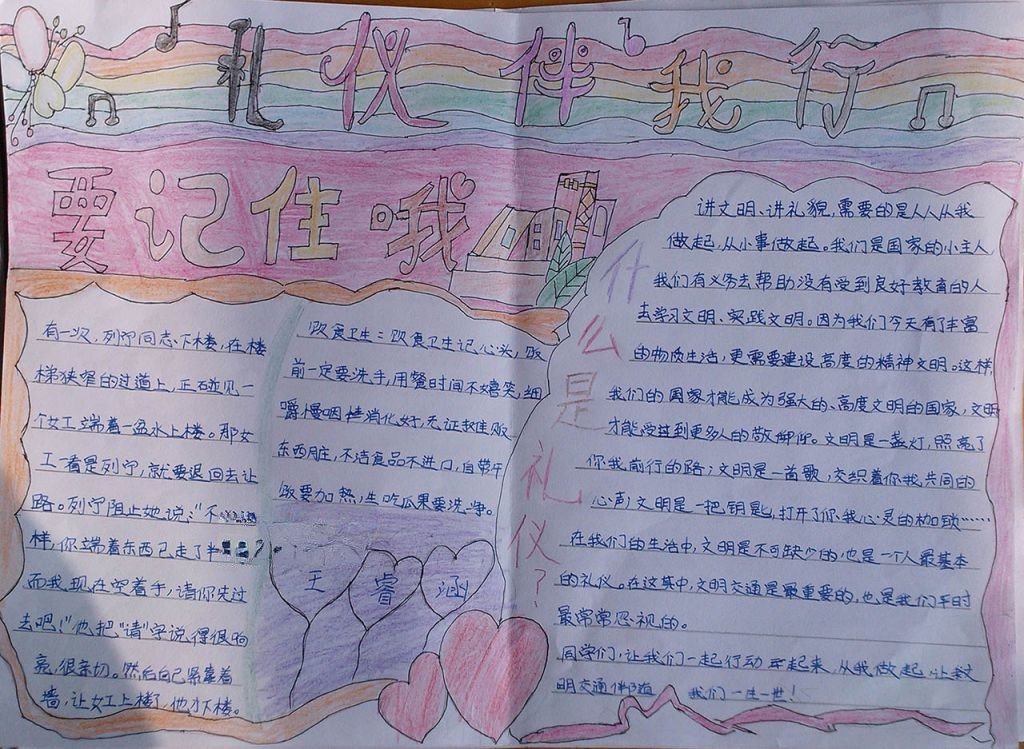 礼仪伴我行
要记住哦
有一次,列宁同志下楼,在楼
梯狭窄的过道上,正碰见一
个女工端着一盆水上楼。那女
工一看是列宁,就要退回去让
路。列宁阻止她说:"不
样,你端着东西已走了半
而我现在空着手,请你先过
去吧!"他把"请"字说得很响
亮,很亲切。然后自己紧靠着
墙,让女工上楼了,他才下楼。
饮食卫生:饮食卫生记心头,饭
前一定要洗手,用餐时间不嬉笑,细
嚼慢咽消化好,无证摊贩
东西脏,不洁食品不进口,自带午
饭要加热,生吃瓜果要洗净。
王睿涵
什么是礼仪?
讲文明、讲礼貌,需要的是人人从我
做起,从小事做起。我们是国家的小主人
我们有义务去帮助没有受到良好教育的人
去学习文明、实践文明。因为我们今天有了丰富
的物质生活,更需要建设高度的精神文明。这样,
我们的国家才能成为强大的、高度文明的国家,文明
才能受到更多人的敬仰。文明是一盏灯,照亮了
你我前行的路;文明是一首歌,交织着你我共同的
心声;文明是一把钥匙,打开了你我心灵的枷锁……
在我们的生活中,文明是不可缺少的,也是一个人最基本
的礼仪。在这其中,文明交通是最重要的,也是我们平时
最常常忽视的。
同学们,让我们一起行动起来,从我做起,让文
明交通伴随我们一生一世!